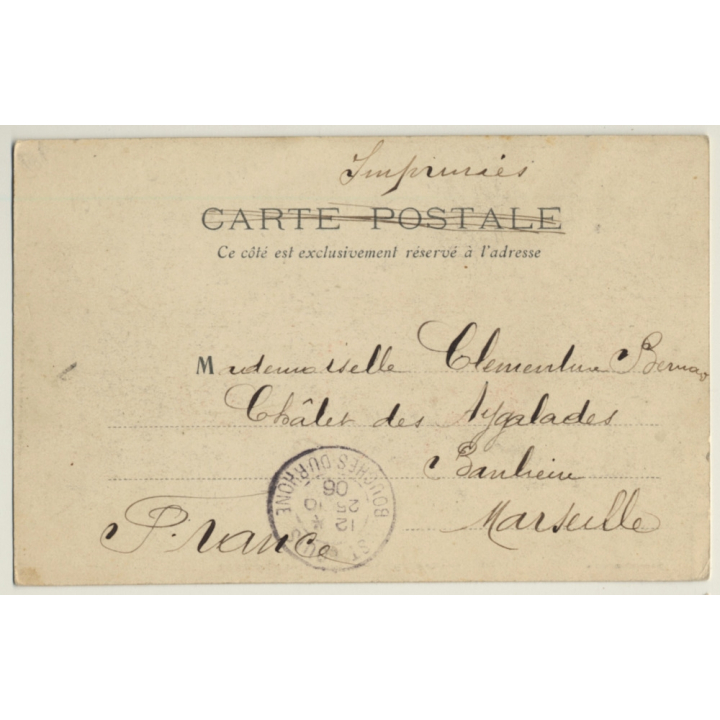 Imprimés
CARTE POSTALE
Ce côté est exclusivement réservé à l'adresse
Mademoiselle Clementine
Châlet des Aygalades
Banlieue
Marseille
France
BOUCHES-DU-RHONE
12
25
06